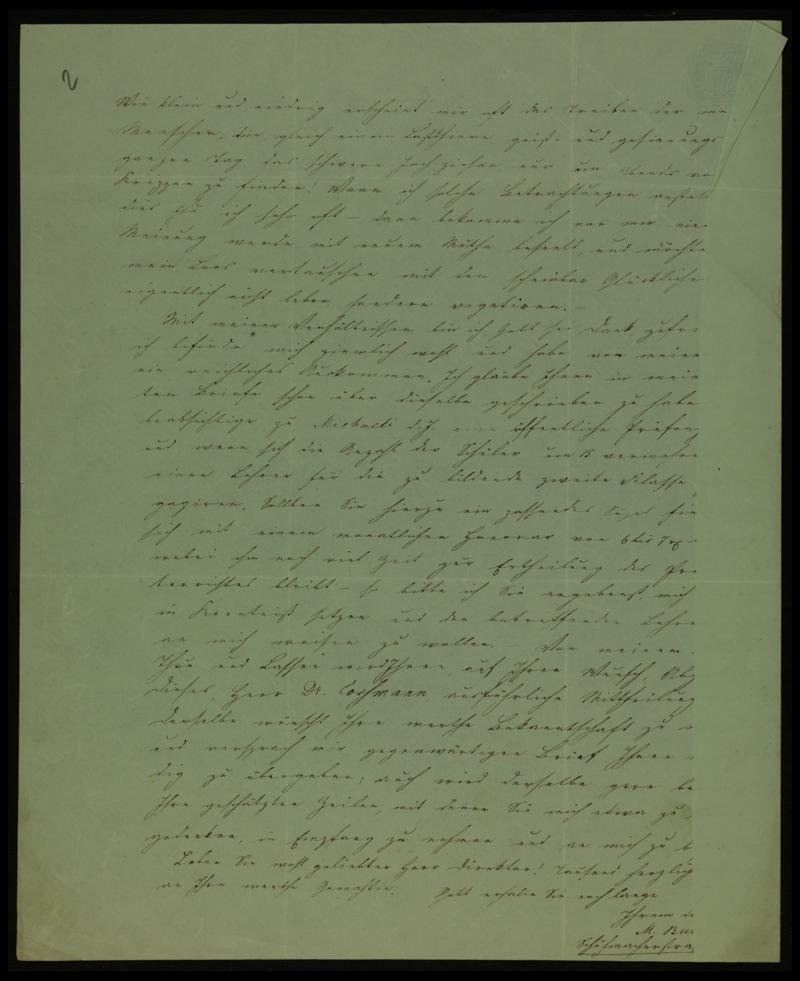 2
Wie klein und niedrig erscheint mir oft das Treiben der
Menschen, die gleich einem Lastthiere, geist- und gesinnungs
ganzen Tag das schwere Joch ziehen nur um Abends
Krippen zu finden! Wenn ich solche Betrachtungen anstel
dies thu ich sehr oft – dann bekomme ich von mir
Meinung werde mit neuem Muthe beseelt, und möchte
mein Loos vertauschen mit den scheinbar Glückliche
eigentlich nicht leben, sondern vegetiren. –
Mit meinen Verhältnissen bin ich, Gott sei Dank, zufri
ich befinde mich ziemlich wohl und habe von meine
ein reichliches Auskommen. Ich glaube Ihnen in mein
ten Briefe schon über dieselbe geschrieben zu habe
beabsichtige zu Michaeli d. J. eine öffentliche Prüfun
und wenn sich die Anzahl der Schüler um 15 vermehre
einen Lehrer für die zu bildende zweite Klasse
gagiren. Sollten Sie hierzu ein passendes
sich mit einem monatlichen Honorar von 6 bis 7
wobei ihm noch viel Zeit zur Ertheilung des Pr
terrichtes bleibt – so bitte ich Sie ergebenst, mich
in Kenntniß setzen und den betreffenden Lehre
an mich weisen zu wollen. Von meinem
Thun und Lassen wird Ihnen, auf Ihren Wunsch,
dieses, Herr Dr. Cossmann, ausführliche Mittheilung
Derselbe wünscht Ihre werthe Bekanntschaft zu
und versprach mir gegenwärtigen Brief Ihnen
dig zu übergeben; auch wird derselbe gern be
Ihre geschätzten Zeilen, mit denen Sie mich etwa zu
gedenken, in Empfang zu nehmen und an mich zu b
Leben Sie wohl geliebter Herr Direktor! Tausend herzlich
an Ihre werthe Gemahlin. Gott erhalte Sie noch lange
Ihrem
M. Bur
Schuhmacherstra